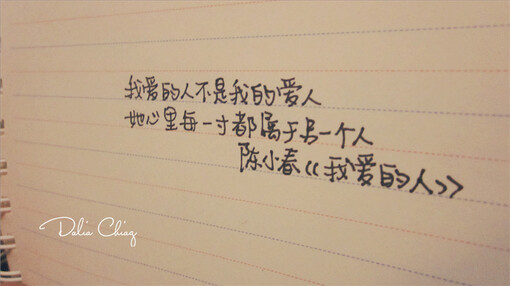 我爱的人不是我的爱人
她心里每一寸都属于另一个人
陈小春《我爱的人》
Dalia Chiaq